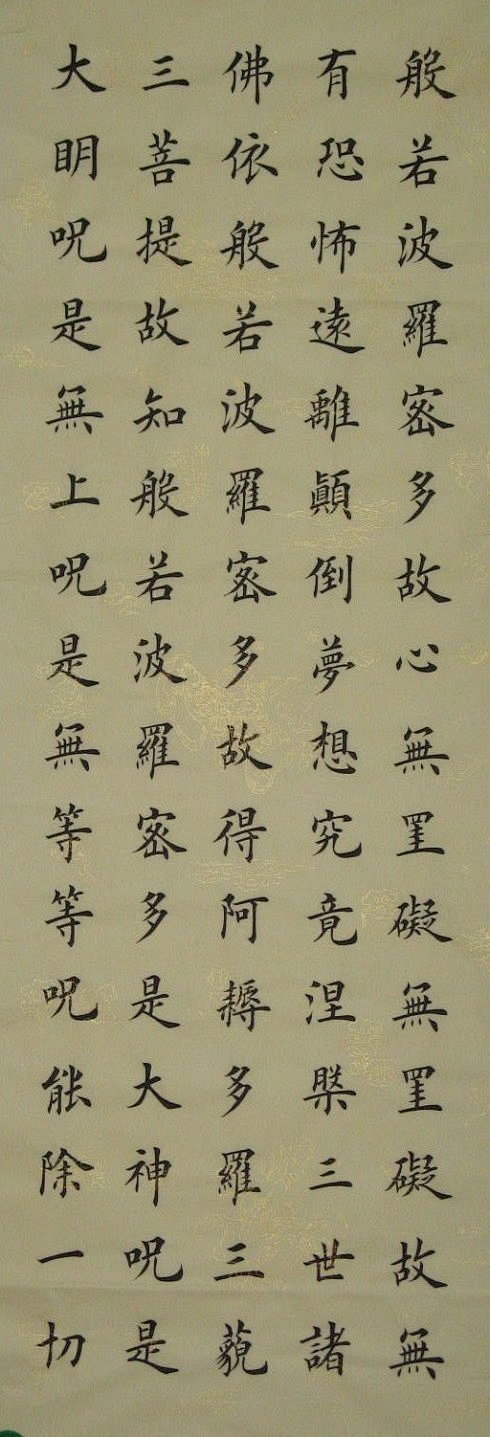 般若波羅密多故心無罣礙無罣礙故無
有恐怖遠離顛倒夢想究竟涅槃三世諸
佛依般若波羅密多故得阿耨多羅三藐
三菩提故知般若波羅密多是大神呪是
大明呪是無上呪是無等等呪能除一切